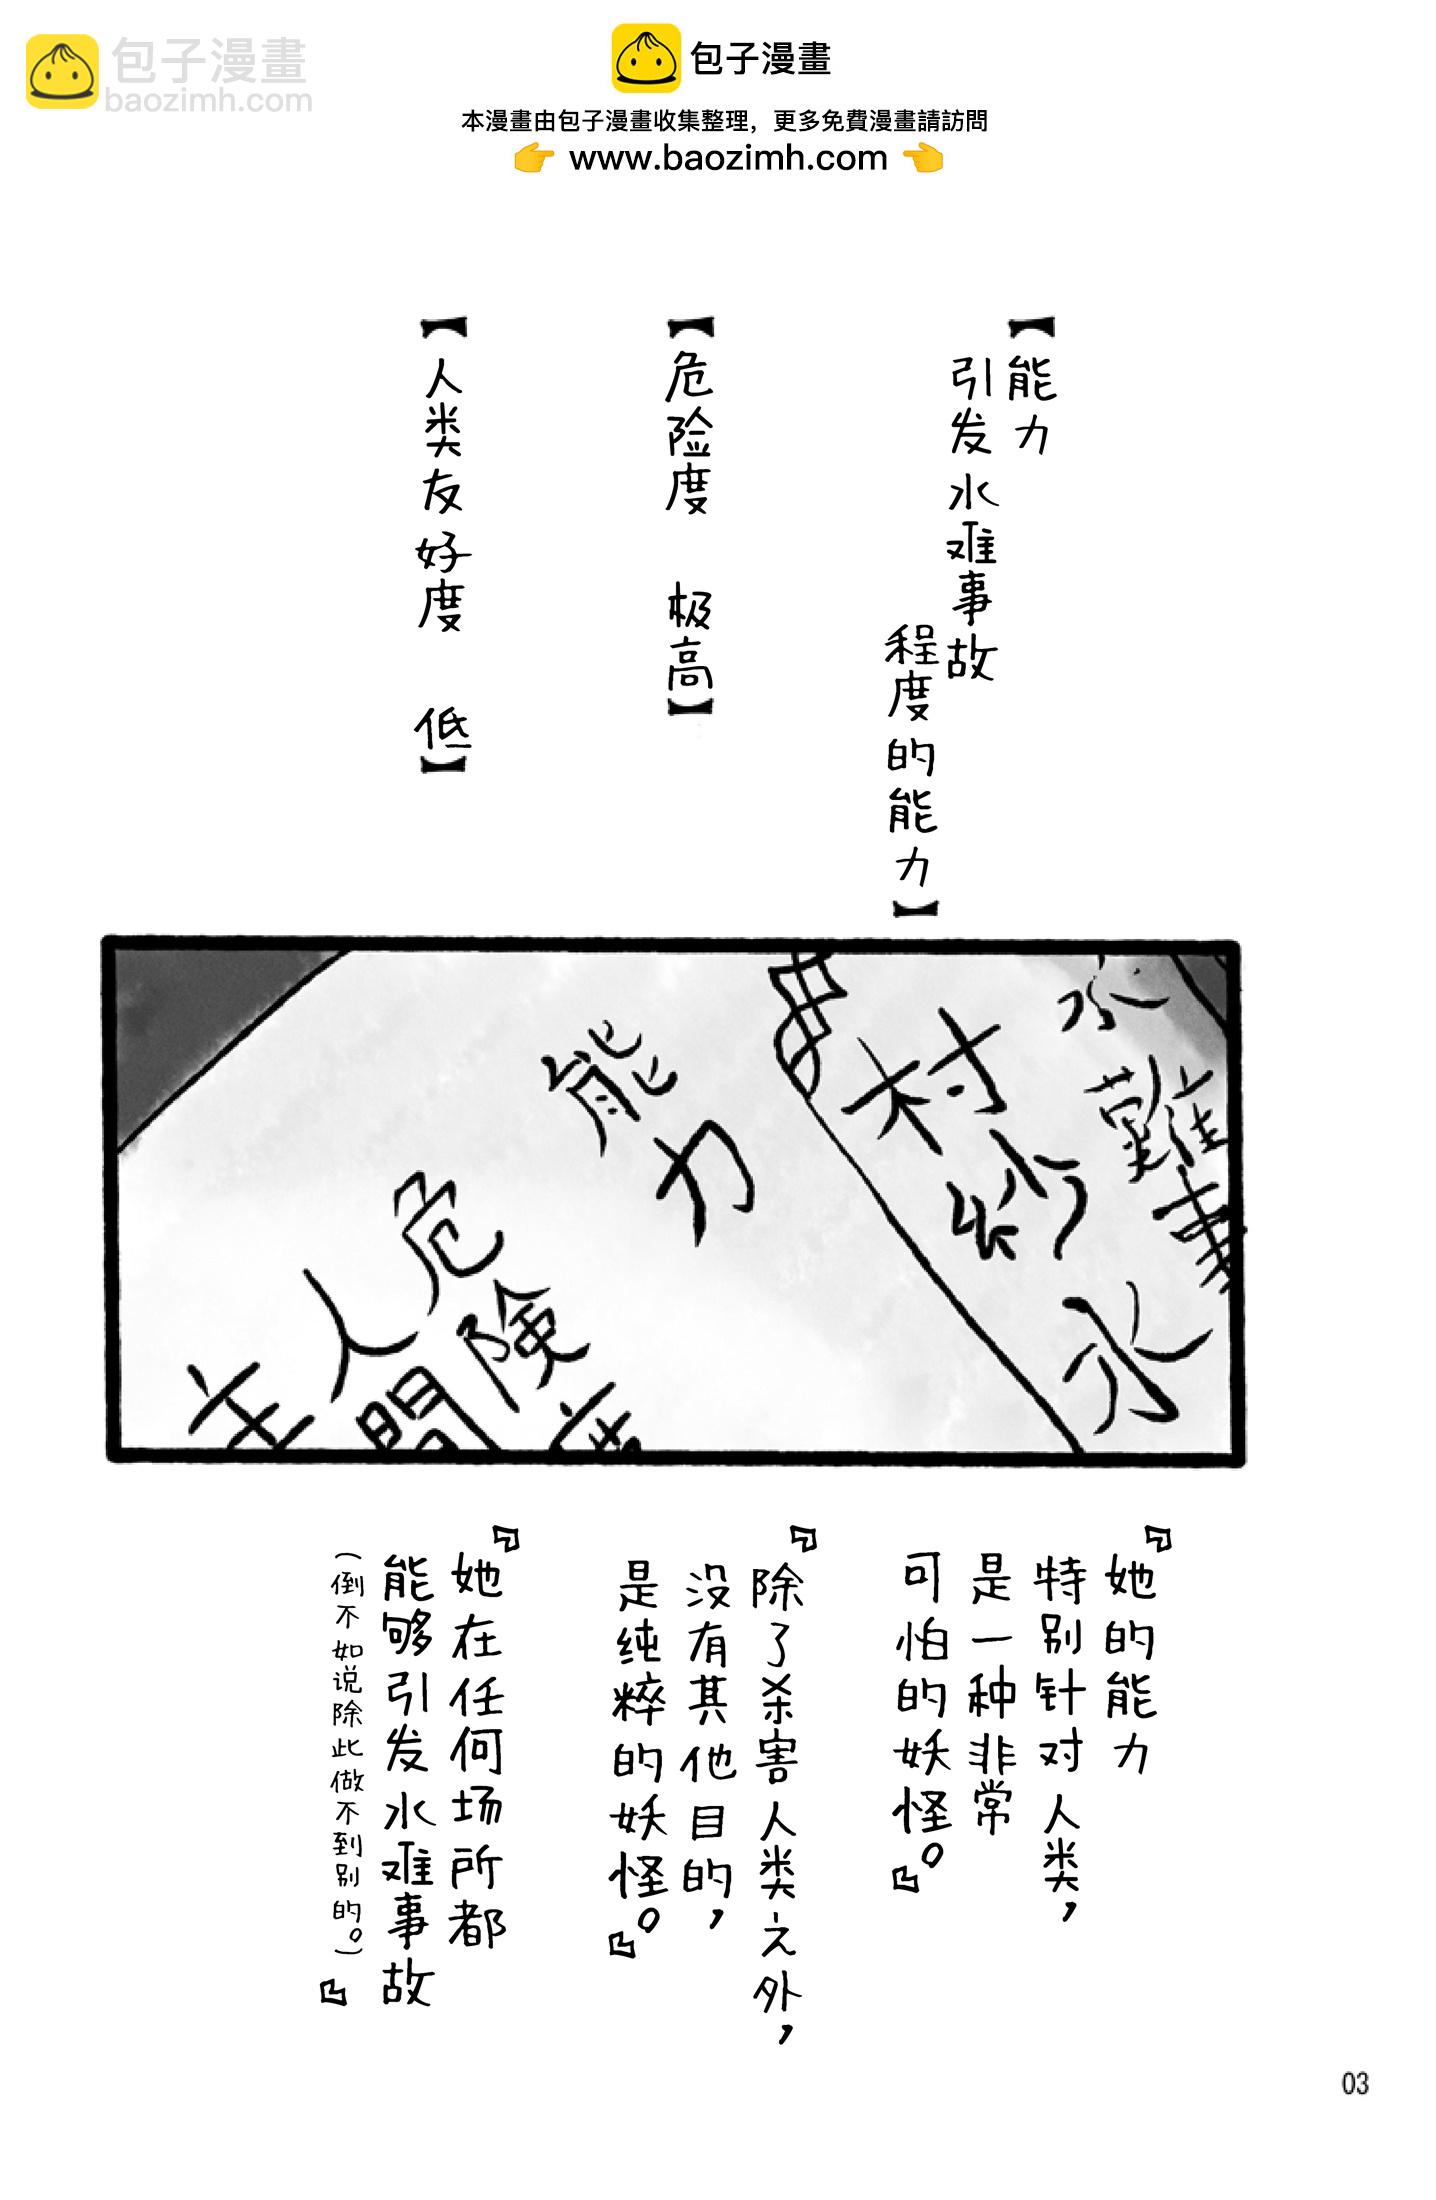 包子漫畫
baozimh.com
包子漫畫
本漫畫由包子漫畫收集整理，更多免費漫畫請訪問
👉 www.baozimh.com 👈
【能力
引发水难事故
程度的能力】
【危险度 极高】
【人类友好度 低】
水難事
村紗水
能力
危険度
人間
『她的能力
特别针对人类，
是一种非常
可怕的妖怪。』
『除了杀害人类之外，
没有其他目的，
是纯粹的妖怪。』
『她在任何场所都
能够引发水难事故
（倒不如说除此做不到别的。）』
03